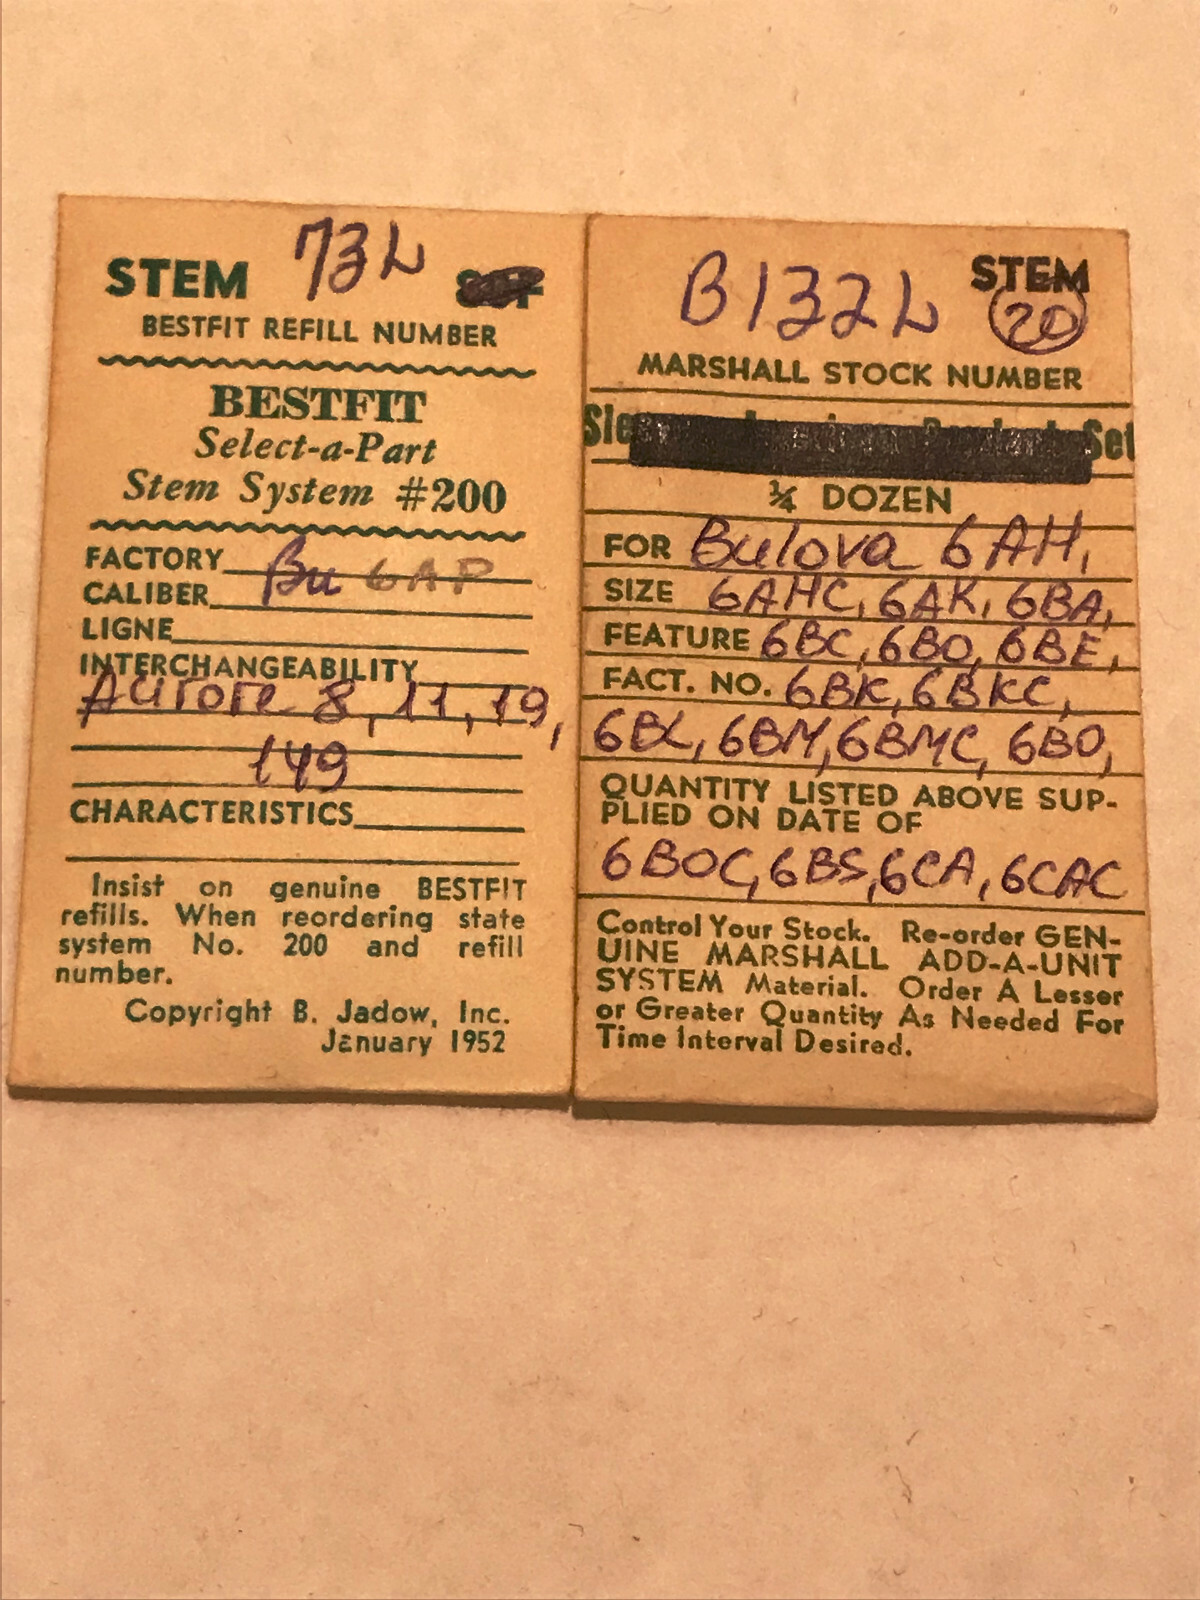 73L
STEM
BESTFIT REFILL NUMBER
BESTFIT
Select-a-Part
Stem System #200
FACTORY Bu 6AP
CALIBER
LIGNE
INTERCHANGEABILITY
Aurore 8, 11, 19,
149
CHARACTERISTICS
Insist on genuine BESTFIT
refills. When reordering state
system No. 200 and refill
number.
Copyright B. Jadow, Inc.
January 1952
B132L STEM
20
MARSHALL STOCK NUMBER
Set
¼ DOZEN
FOR Bulova 6AH,
SIZE 6AHC, 6AK, 6BA,
FEATURE 6BC, 6BO, 6BE,
FACT. NO. 6BK, 6BKC,
6BL, 6BM, 6BMC, 6BO,
QUANTITY LISTED ABOVE SUP-
PLIED ON DATE OF
6BOC, 6BS, 6CA, 6CAC
Control Your Stock. Re-order GEN-
UINE MARSHALL ADD-A-UNIT
SYSTEM Material. Order A Lesser
or Greater Quantity As Needed For
Time Interval Desired.